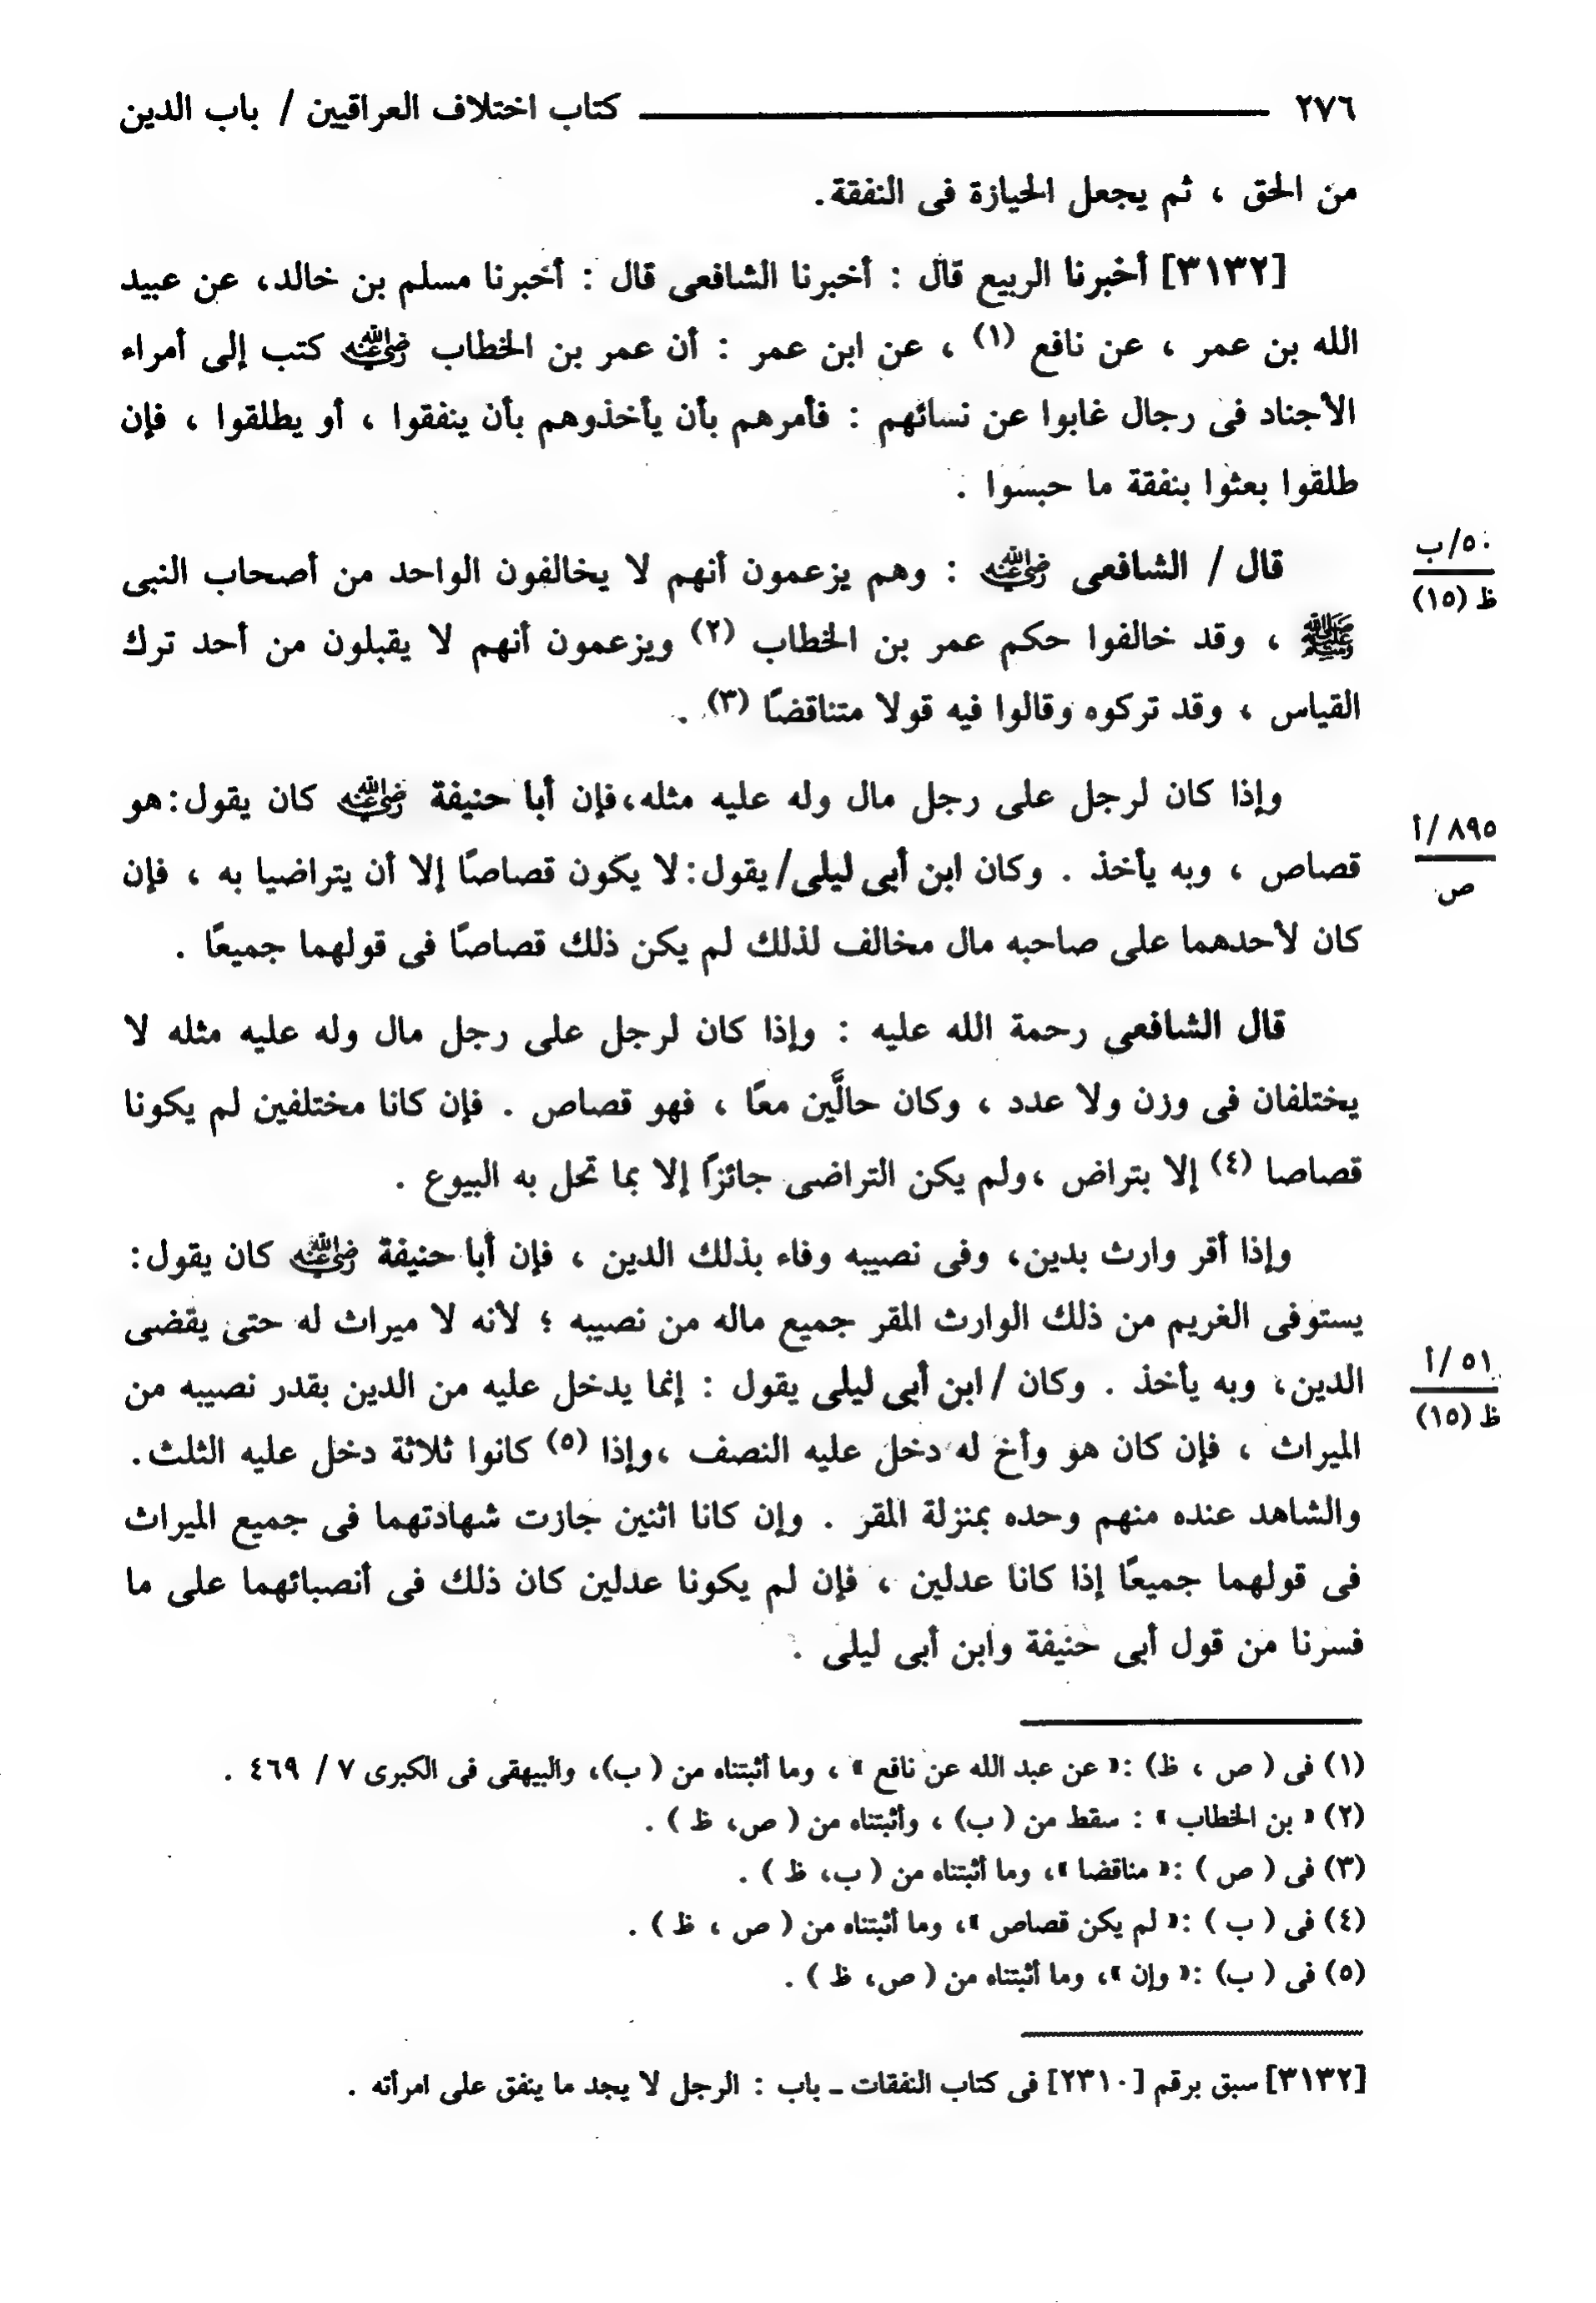 ٢٧٦ كتاب اختلاف العراقيين / باب الدين
من الحق ، ثم يجعل الحيازة فى النفقة.
[٣١٣٢] أخبرنا الربيع قال : أخبرنا الشافعى قال : أخبرنا مسلم بن خالد، عن عبيد
الله بن عمر ، عن نافع (١) ، عن ابن عمر : أن عمر بن الخطاب رضي الله عنه كتب إلى أمراء
الأجناد فى رجال غابوا عن نسائهم : فأمرهم بأن يأخذوهم بأن ينفقوا ، أو يطلقوا ، فإن
طلقوا بعثوا بنفقة ما حبسوا .
قال / الشافعى رضي الله عنه : وهم يزعمون أنهم لا يخالفون الواحد من أصحاب النبى
٥٠/ب
ظ (١٥)
ﷺ ، وقد خالفوا حكم عمر بن الخطاب (٢) ويزعمون أنهم لا يقبلون من أحد ترك
القياس ، وقد تركوه وقالوا فيه قولا متناقضًا (٣) .
وإذا كان لرجل على رجل مال وله عليه مثله،فإن أبا حنيفة رضي الله عنه كان يقول:هو
٨٩٥/أ
ص
قصاص ، وبه يأخذ . وكان ابن أبى ليلى/ يقول:لا يكون قصاصًا إلا أن يتراضيا به ، فإن
كان لأحدهما على صاحبه مال مخالف لذلك لم يكن ذلك قصاصًا فى قولهما جميعًا .
قال الشافعى رحمة الله عليه : وإذا كان لرجل على رجل مال وله عليه مثله لا
يختلفان فى وزن ولا عدد ، وكان حالَّين معًا ، فهو قصاص . فإن كانا مختلفين لم يكونا
قصاصا (٤) إلا بتراض ،ولم يكن التراضى جائزًا إلا بما تحل به البيوع .
وإذا أقر وارث بدين، وفى نصيبه وفاء بذلك الدين ، فإن أبا حنيفة رضي الله عنه كان يقول:
يستوفى الغريم من ذلك الوارث المقر جميع ماله من نصيبه ؛ لأنه لا ميراث له حتى يقضى
الدين، وبه يأخذ . وكان / ابن أبى ليلى يقول : إنما يدخل عليه من الدين بقدر نصيبه من
٥١/أ
ظ (١٥)
الميراث ، فإن كان هو وأخ له دخل عليه النصف ،وإذا (٥) كانوا ثلاثة دخل عليه الثلث.
والشاهد عنده منهم وحده بمنزلة المقر . وإن كانا اثنين جازت شهادتهما فى جميع الميراث
فى قولهما جميعًا إذا كانا عدلين ، فإن لم يكونا عدلين كان ذلك فى أنصبائهما على ما
فسرنا من قول أبى حنيفة وابن أبى ليلى .
(١) فى ( ص ، ظ) :« عن عبد الله عن نافع » ، وما أثبتناه من ( ب)، والبيهقى فى الكبرى ٧ / ٤٦٩ .
(٢) « بن الخطاب » : سقط من ( ب) ، وأثبتناه من ( ص، ظ ) .
(٣) فى ( ص ) :« مناقضا »، وما أثبتناه من ( ب، ظ ) .
(٤) فى ( ب ) :« لم يكن قصاص »، وما أثبتناه من ( ص ، ظ ) .
(٥) فى ( ب) :« وإن »، وما أثبتناه من ( ص، ظ ) .
[٣١٣٢] سبق برقم [٢٣١٠] فى كتاب النفقات ـ باب : الرجل لا يجد ما ينفق على امرأته .